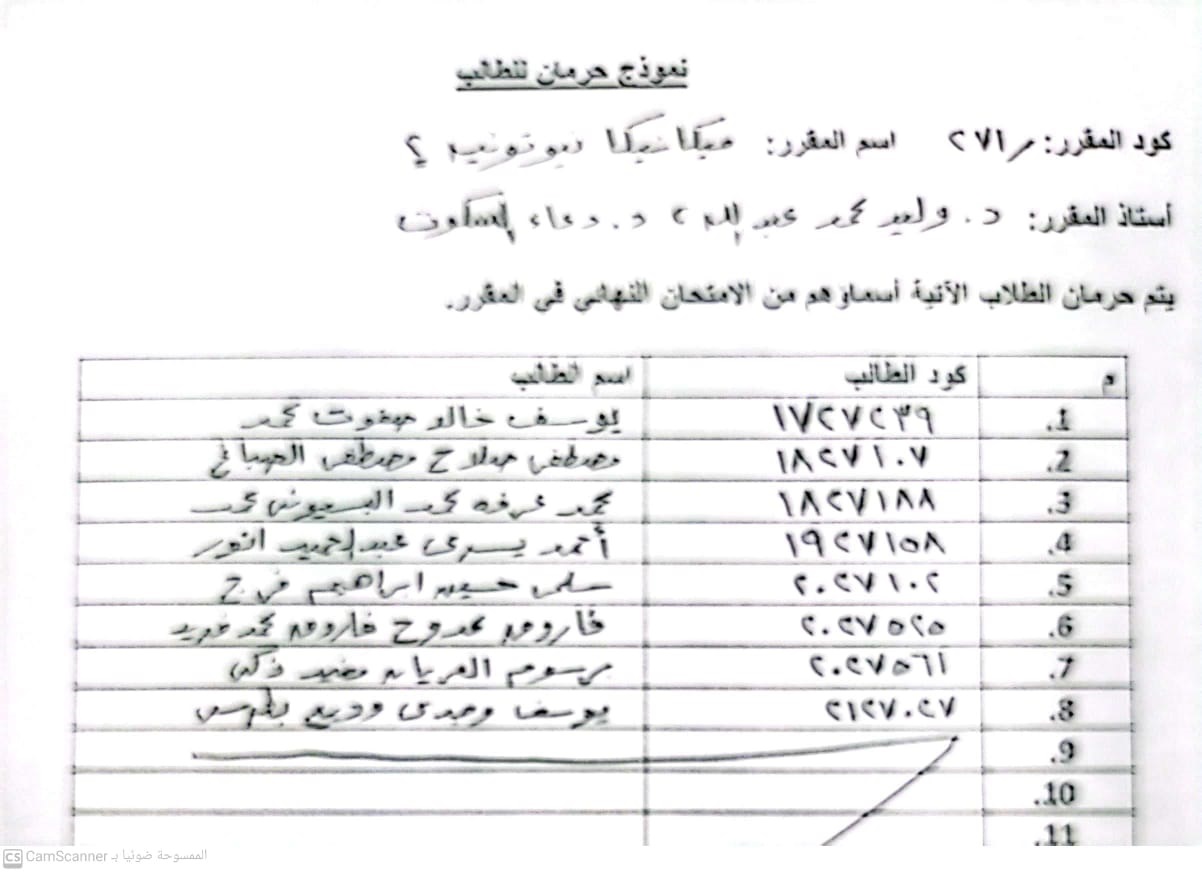 نموذج حرمان للطالب
كود المقرر: ر٢٧١ اسم المقرر: ميكانيكا نيوتونيه ٢
أستاذ المقرر: د. وليد محمد عبد الله ٢ د. دعاء السكوت
يتم حرمان الطلاب الآتية أسماؤهم من الامتحان النهائي في المقرر.
م كود الطالب اسم الطالب
1. ١٧٢٧٢٣٩ يوسف خالد صفوت محمد
2. ١٨٢٧١٠٧ مصطفى صلاح مصطفى
3. ١٨٢٧١٨٨ محمد عرفه محمد البسيونى محمد
4. ١٩٢٧١٥٨ أحمد يسرى عبدالحميد انور
5. ٢٠٢٧١٠٢ سلمى حسين ابراهيم فرج
6. ٢٠٢٧٥٢٥ فاروق ممدوح فاروق محمد فريد
7. ٢٠٢٧٥٦١ برسوم العريان مفيد زكى
8. ٢١٢٧٠٢٧ يوسف وجدى وديع بطرس
9.
10.
11.
CS CamScanner الممسوحة ضوئيا بـ